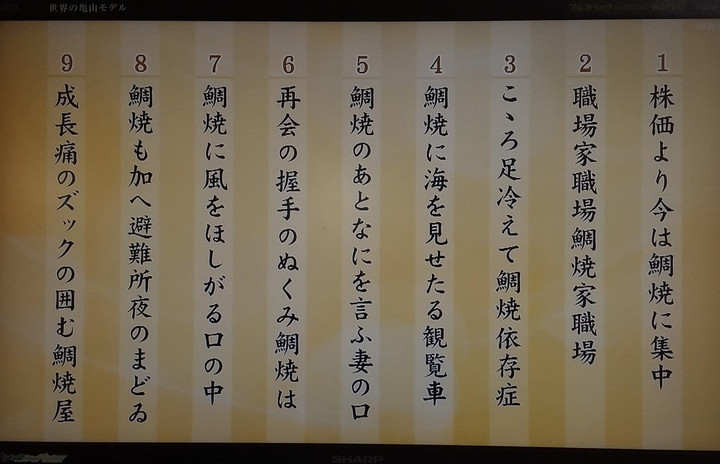 世界の亀山モデル
1 株価より今は鯛焼に集中
2 職場家職場鯛焼家職場
3 こゝろ足冷えて鯛焼依存症
4 鯛焼に海を見せたる観覧車
5 鯛焼のあとなにを言ふ妻の口
6 再会の握手のぬくみ鯛焼は
7 鯛焼に風をほしがる口の中
8 鯛焼も加へ避難所夜のまどゐ
9 成長痛のズックの囲む鯛焼屋
SHARP